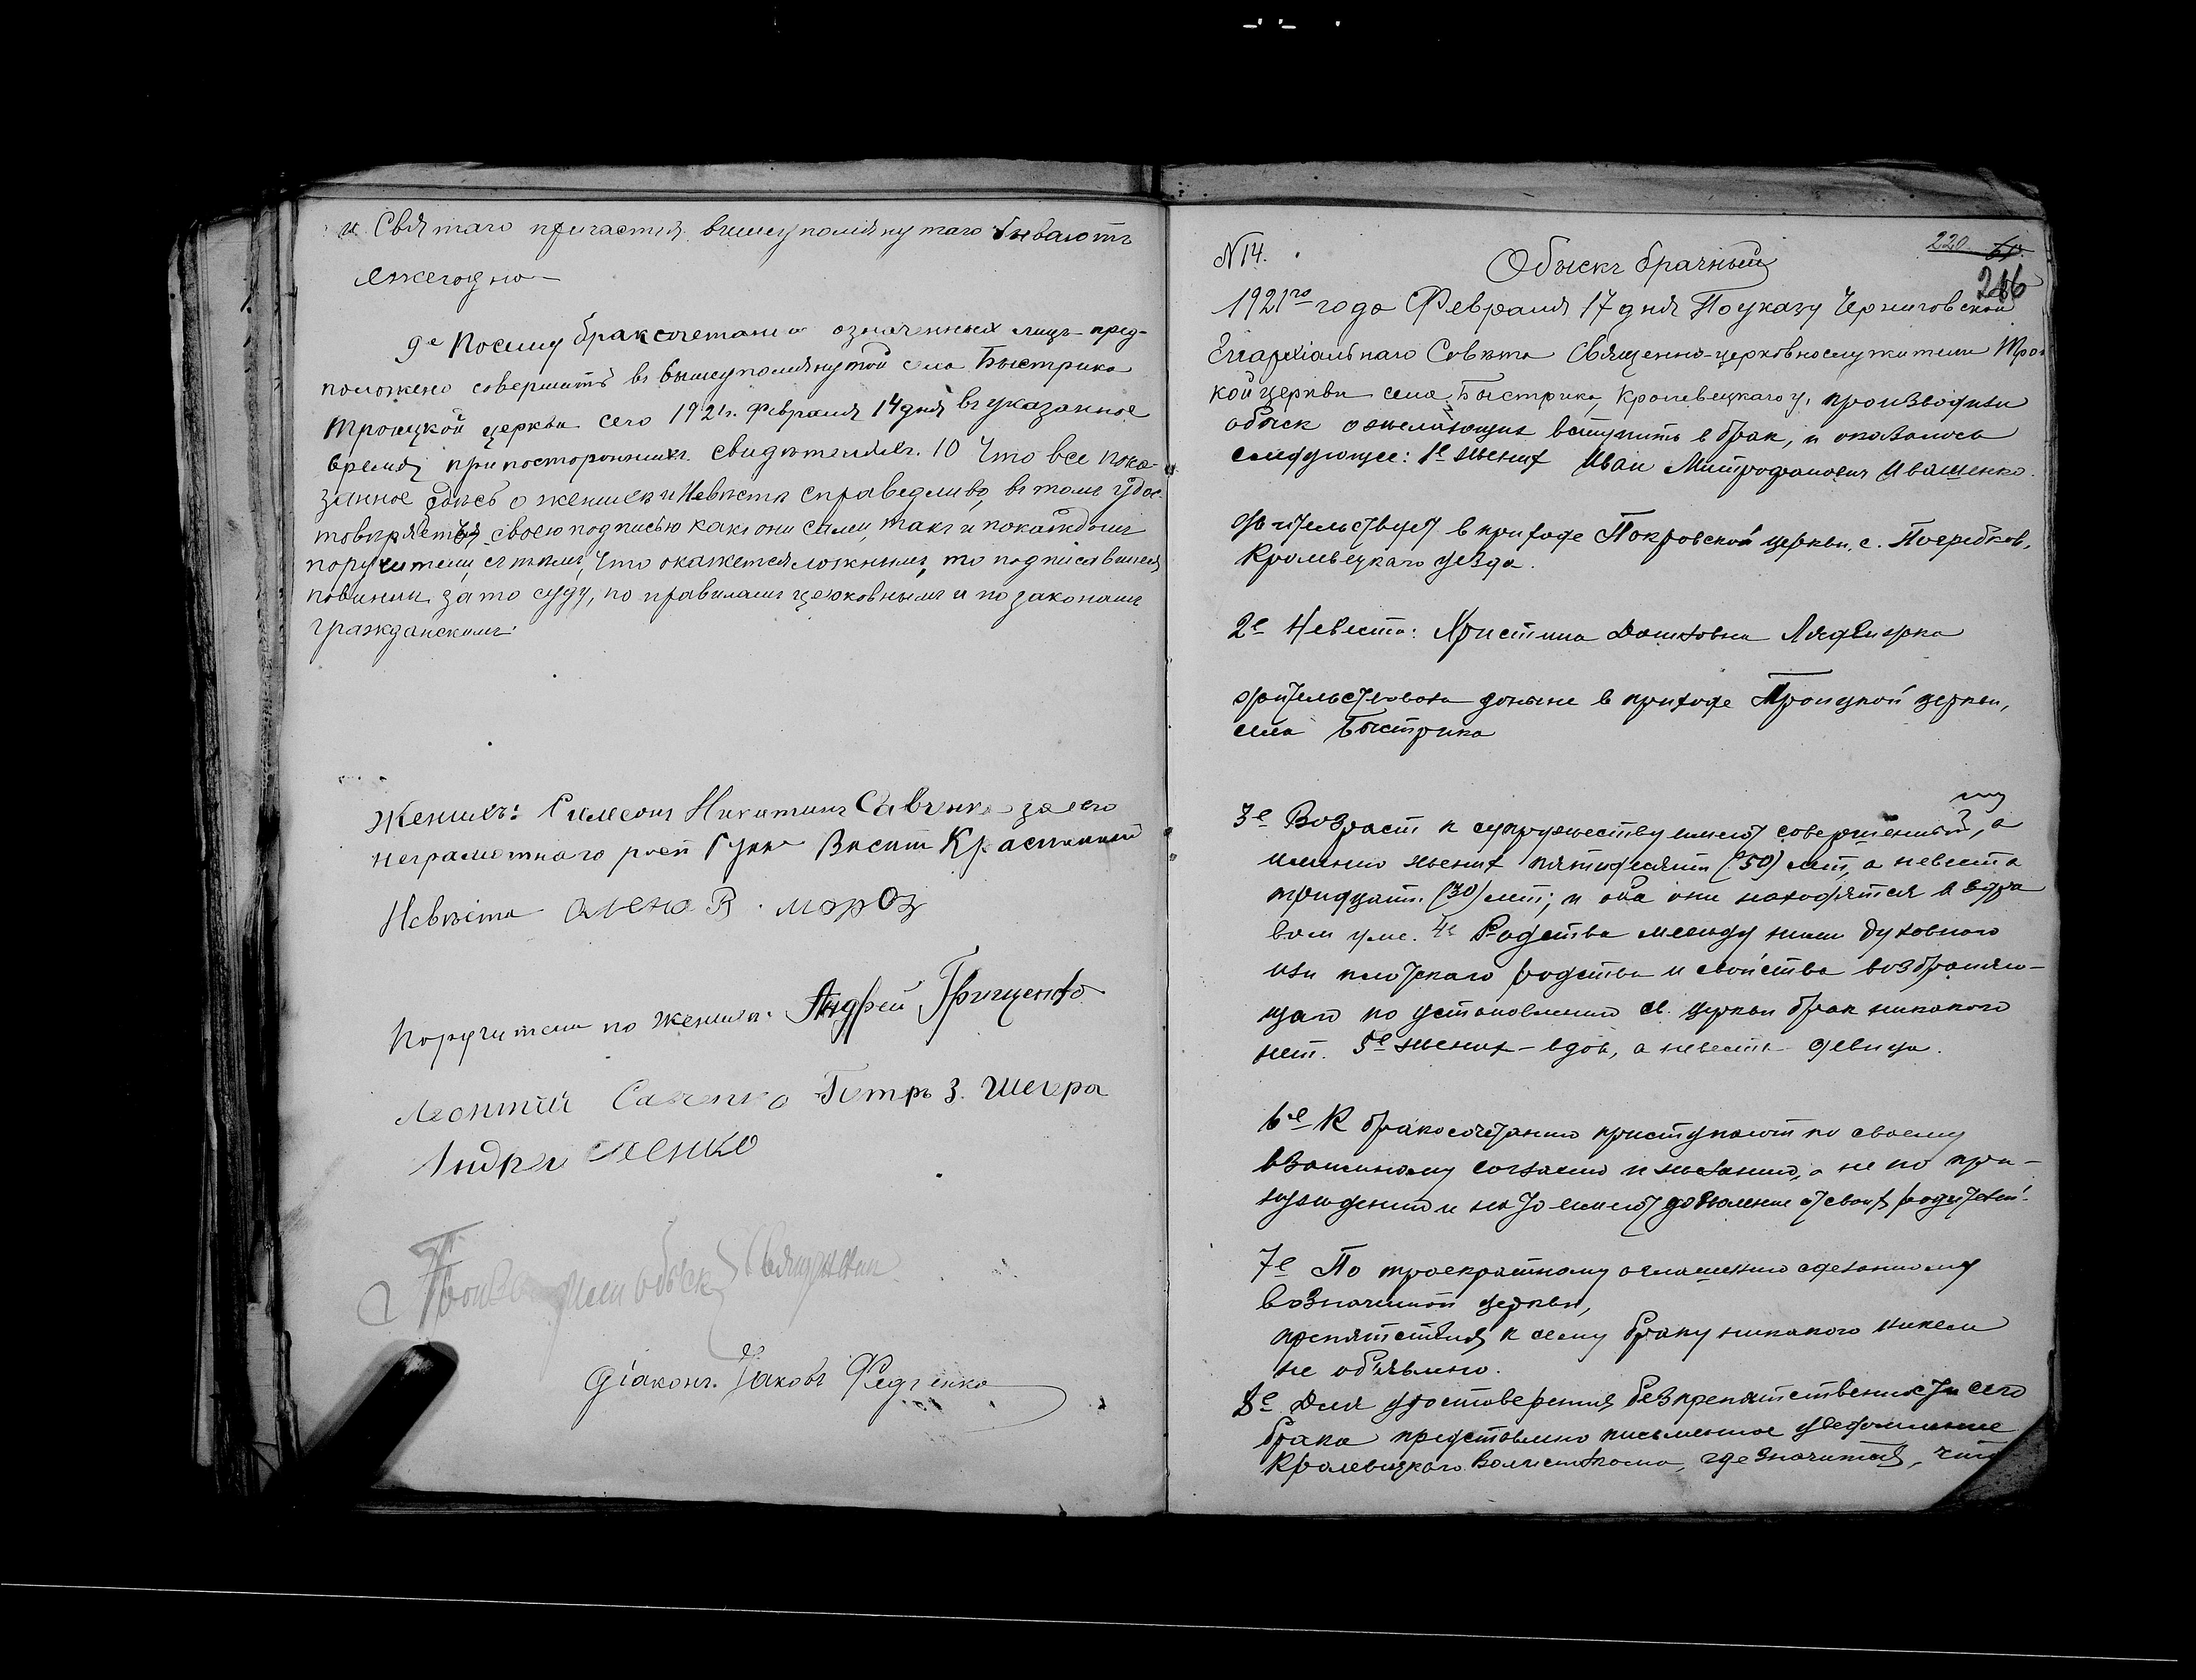 и Святаго причастия вышеупомянутаго бываютъ
ежегодно
9е Посему бракосочетание означенных лицъ пред-
положено совершить въ вышеупомянутой села Быстрика
Троицкой церкви сего 1921 г. Февраля 14 дня въ указанное
время, при постороннихъ свидѣтеляхъ. 10 Что все пока-
занное здѣсь о женихѣ и Невѣстѣ справедливо, въ томъ удос-
товѣряется своею подписью какъ они сами, такъ и по каждомъ
поручители, съ тѣмъ, что окажется ложнымъ, то подписавшиеся
повинны за то суду, по правиламъ церковнымъ и по законамъ
гражданскимъ.
Женихъ: Симеонъ Никитинъ Савченко за его
неграмотнаго
Невѣста алена В. мороз
Поручители по женихѣ: Андрей Грищенко
Леонтий Савченко Петръ З. Шевера
Андрей
Производили обыск Священник
Діаконъ Іаковъ Федченко
220
216
N 14.
Обыскъ брачный
1921го года Февраля 17 дня По указу Черниговской
Епархіальнаго Совѣта Священно-церковнослужители Трои
кой церкви села Быстрика, Кролевецкаго у. производили
обыск о желающих вступить в брак, и оказалось
следующее: 1е Жених Иван Митрофанович Иващенко.
жительствует в приходе Покровской церкви, с. Погребков,
Кролевецкаго уезда.
2е Невеста: Христина
жительствовала доныне в приходе Троицкой церкви,
села Быстрика
3е Возраст к супружеству имеют совершенный, а
именно жених пятидесяти (50) лет, а невеста
тридцати (30) лет; и оба они находятся в здра
вом уме. 4е Родства между ними духовного
или плотскаго родства и свойства возбраняю-
щаго по установлению св. церкви брак никакого
нет. 5е жених - вдов, а невеста девица.
6е К бракосочетанию приступают по своему
взаимному согласию и желанию, а не по при-
нуждению и на то имеют дозволение от своих родителей.
7е По троекратному оглашению сделанному
в означенной церкви,
препятствия к сему браку никакого никем
не объявлено.
8е Для удостоверения безпрепятственности сего
брака представлено письменное уведомление
Кролевецкаго Волисполкома, где значится, что